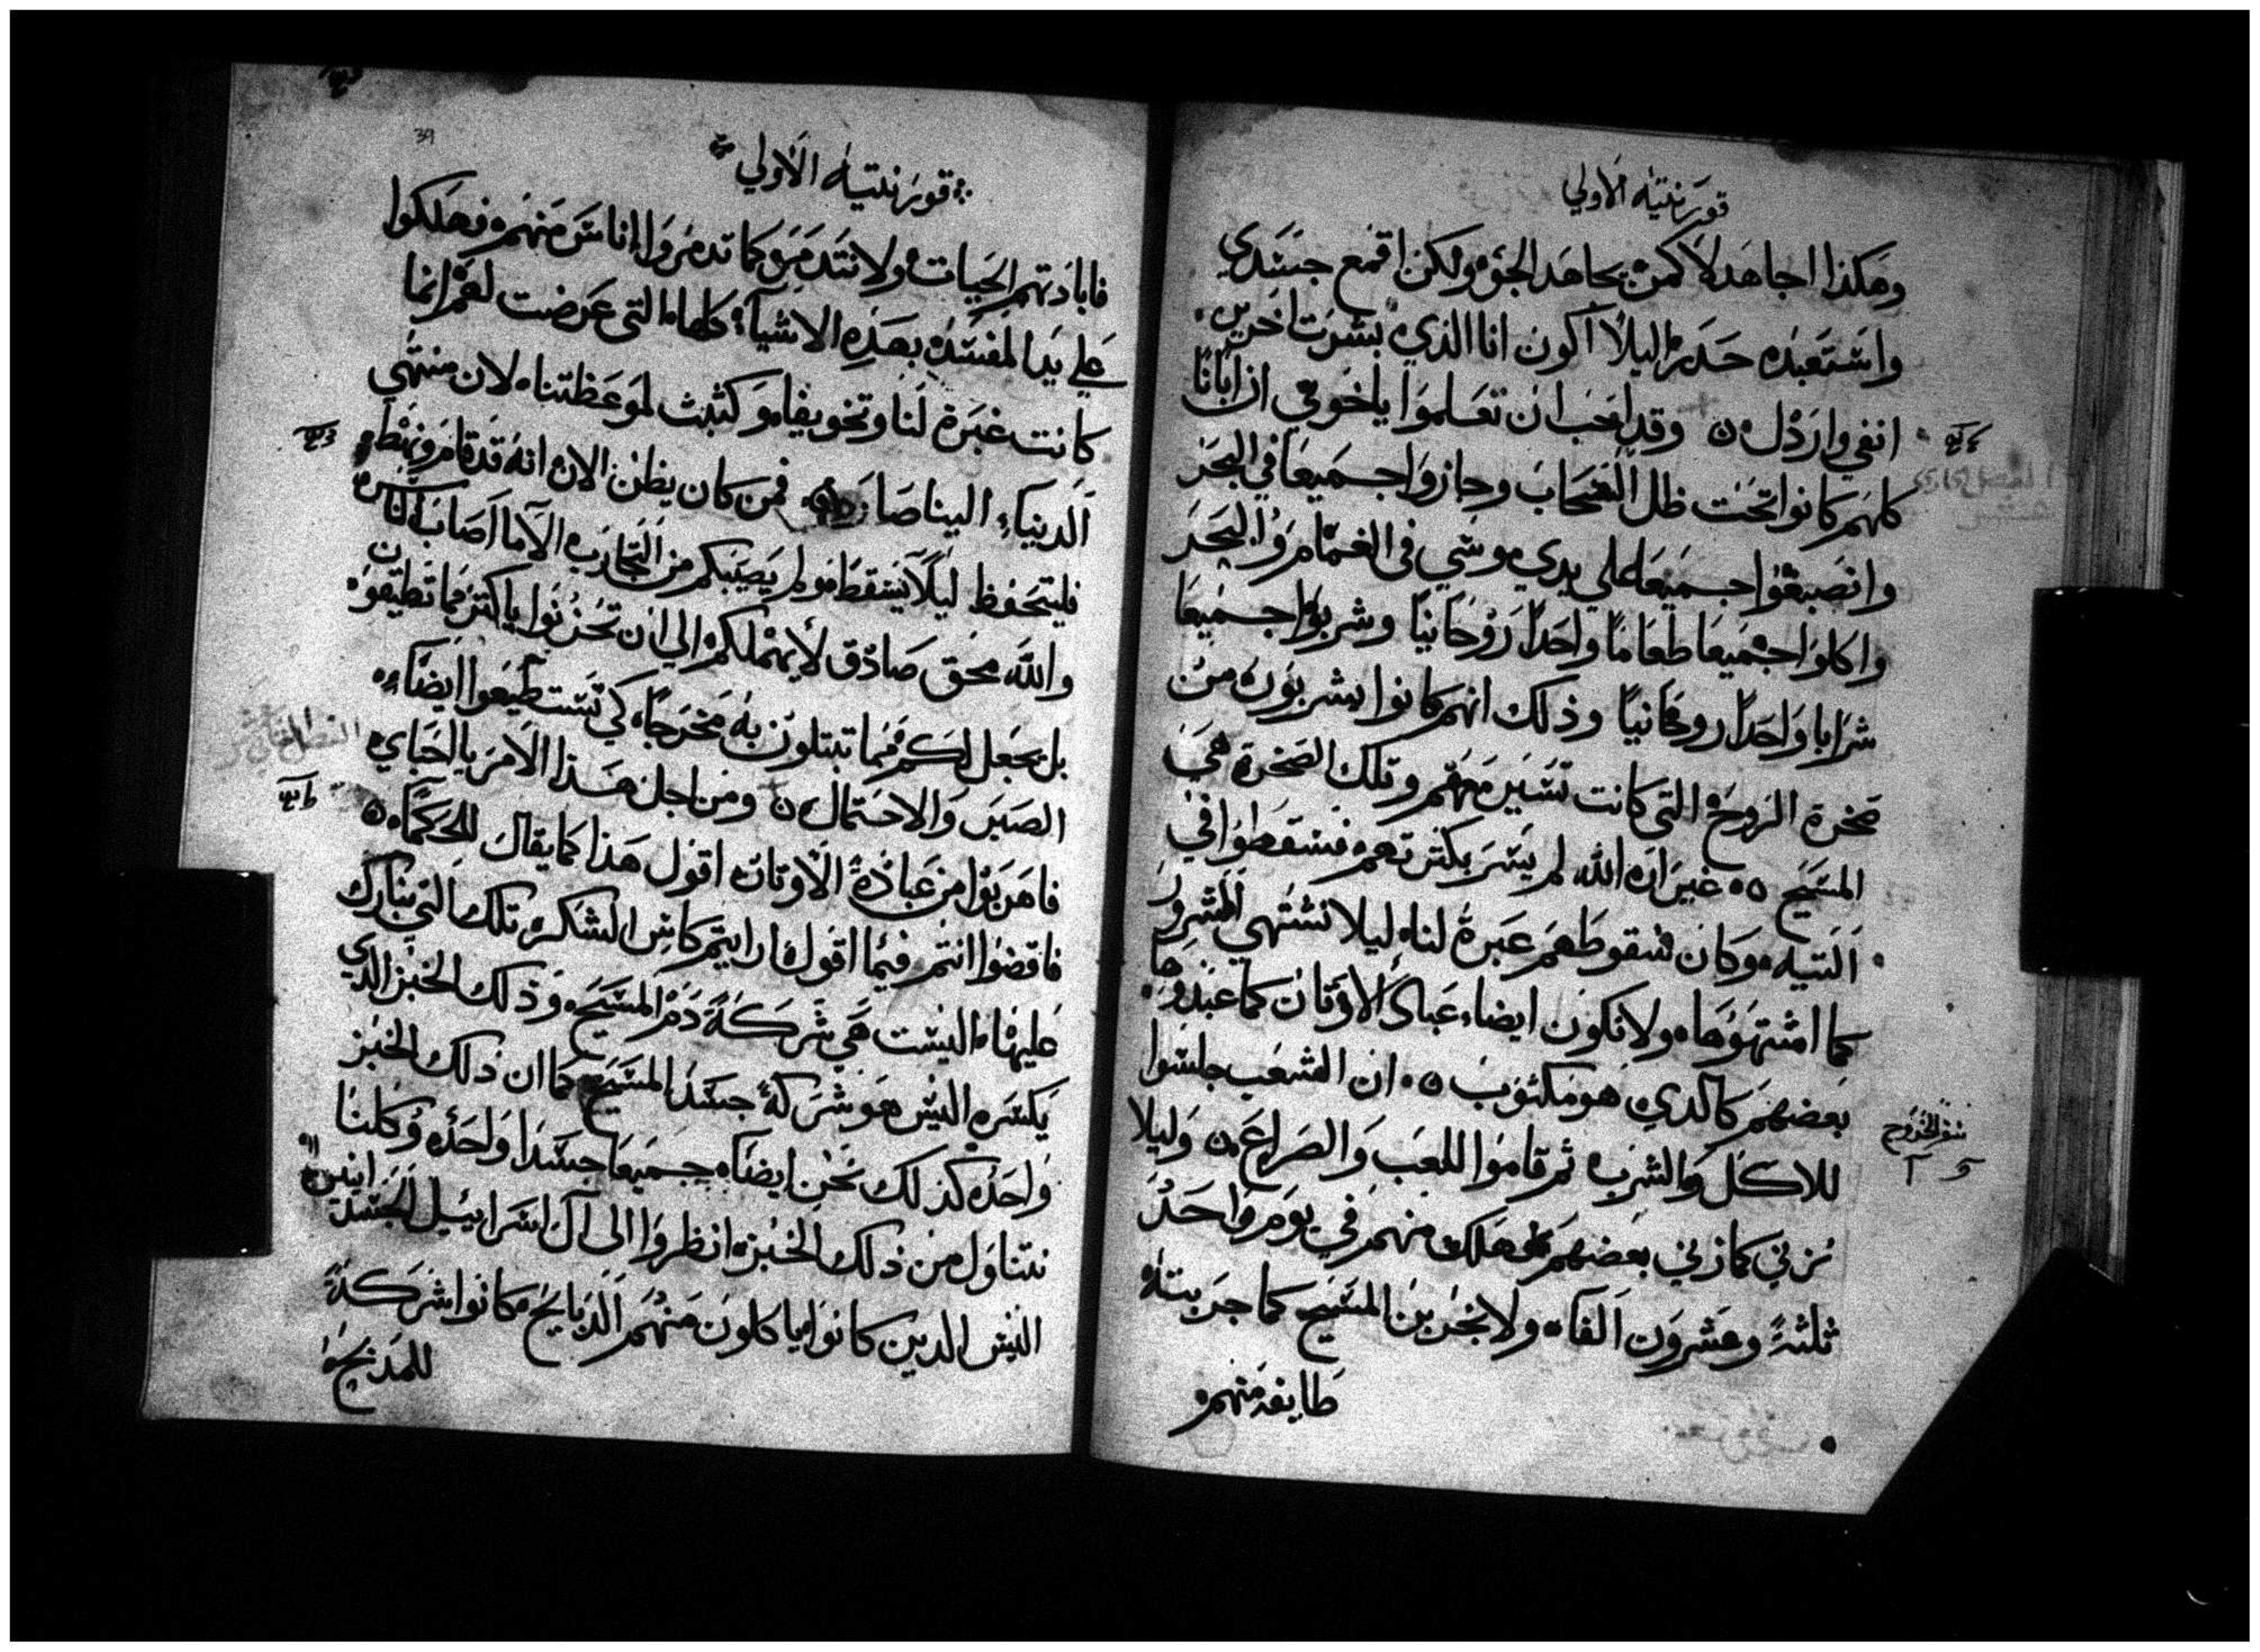 قورنتيه الاولي
وهكذا اجاهد لا كمن يجاهد الجو ولكن اقمع جسدي
واستعبده حدرا ليلا اكون انا الذي بشرت اخرين
انفي وارذل وقد احب ان تعلموا يا اخوتي ان ابانا
كلهم كانوا تحت ظل السحاب وجازوا جميعا في البحر
وانصبغوا جميعا علي يدي موسي في الغمام والبحر
واكلوا جميعا طعاما واحدا روحانيا وشربوا جميعا
شرابا واحدا روحانيا وذلك انهم كانوا يشربون من
صخرة الروح التي كانت تسير معهم وتلك الصخرة هي
المسيح غير ان الله لم يسر بكثرتهم فسقطوا في
التيه وكان سقوطهم عبرة لنا ليلا نشتهي الشرور
كما اشتهوها ولا نكون ايضا عباد الاوثان كما عبدوها
بعضهم كالدي هو مكتوب ان الشعب جلسوا
سفر الخروج
للاكل والشرب ثم قاموا للعب والصراع وليلا
نزني كما زني بعضهم هلك منهم في يوم واحد
ثلثة وعشرون الفا ولا نجربن المسيح كما جربته
طايفة منهم
39
قورنتيه الاولي
فابادتهم الحيات ولا نتدمرو كما تدمروا اناس منهم فهلكوا
علي يد المفسد بهذه الاشيا كلها التي عرضت لهم انما
كانت عبرة لنا وتخويفا وكتبت لموعظتنا لان منتهي
الدنيا الينا صار فمن كان يظن الان انه قد قام
فليتحفظ ليلا يسقط ولم يصيبكم من التجارب الا ما اصاب الناس
والله محق صادق لا يهملكم الي ان تجربوا باكتر مما تطيقون
بل يجعل لكم فيما تبتلون به مخرجا كي تستطيعوا ايضا
الصبر والاحتمال ومن اجل هذا الامر يا احباي
فاهربوا من عبادة الاوتان اقول هذا كما يقال للحكما
فاقضوا انتم فيما اقول ارايتم كاس الشكر تلك التي نبارك
عليها اليست هي شركة دم المسيح وذلك الخبز الدي
يكسر اليس هو شركة جسد المسيح كما ان ذلك الخبز
واحد كذلك نحن ايضا جميعا جسدا واحد وكلنا
نتناول من ذلك الخبز انظروا الي ال اسرائيل الجسدانيين
اليس الدين كانوا ياكلون منهم الذبايح كانوا شركة
للمذبح